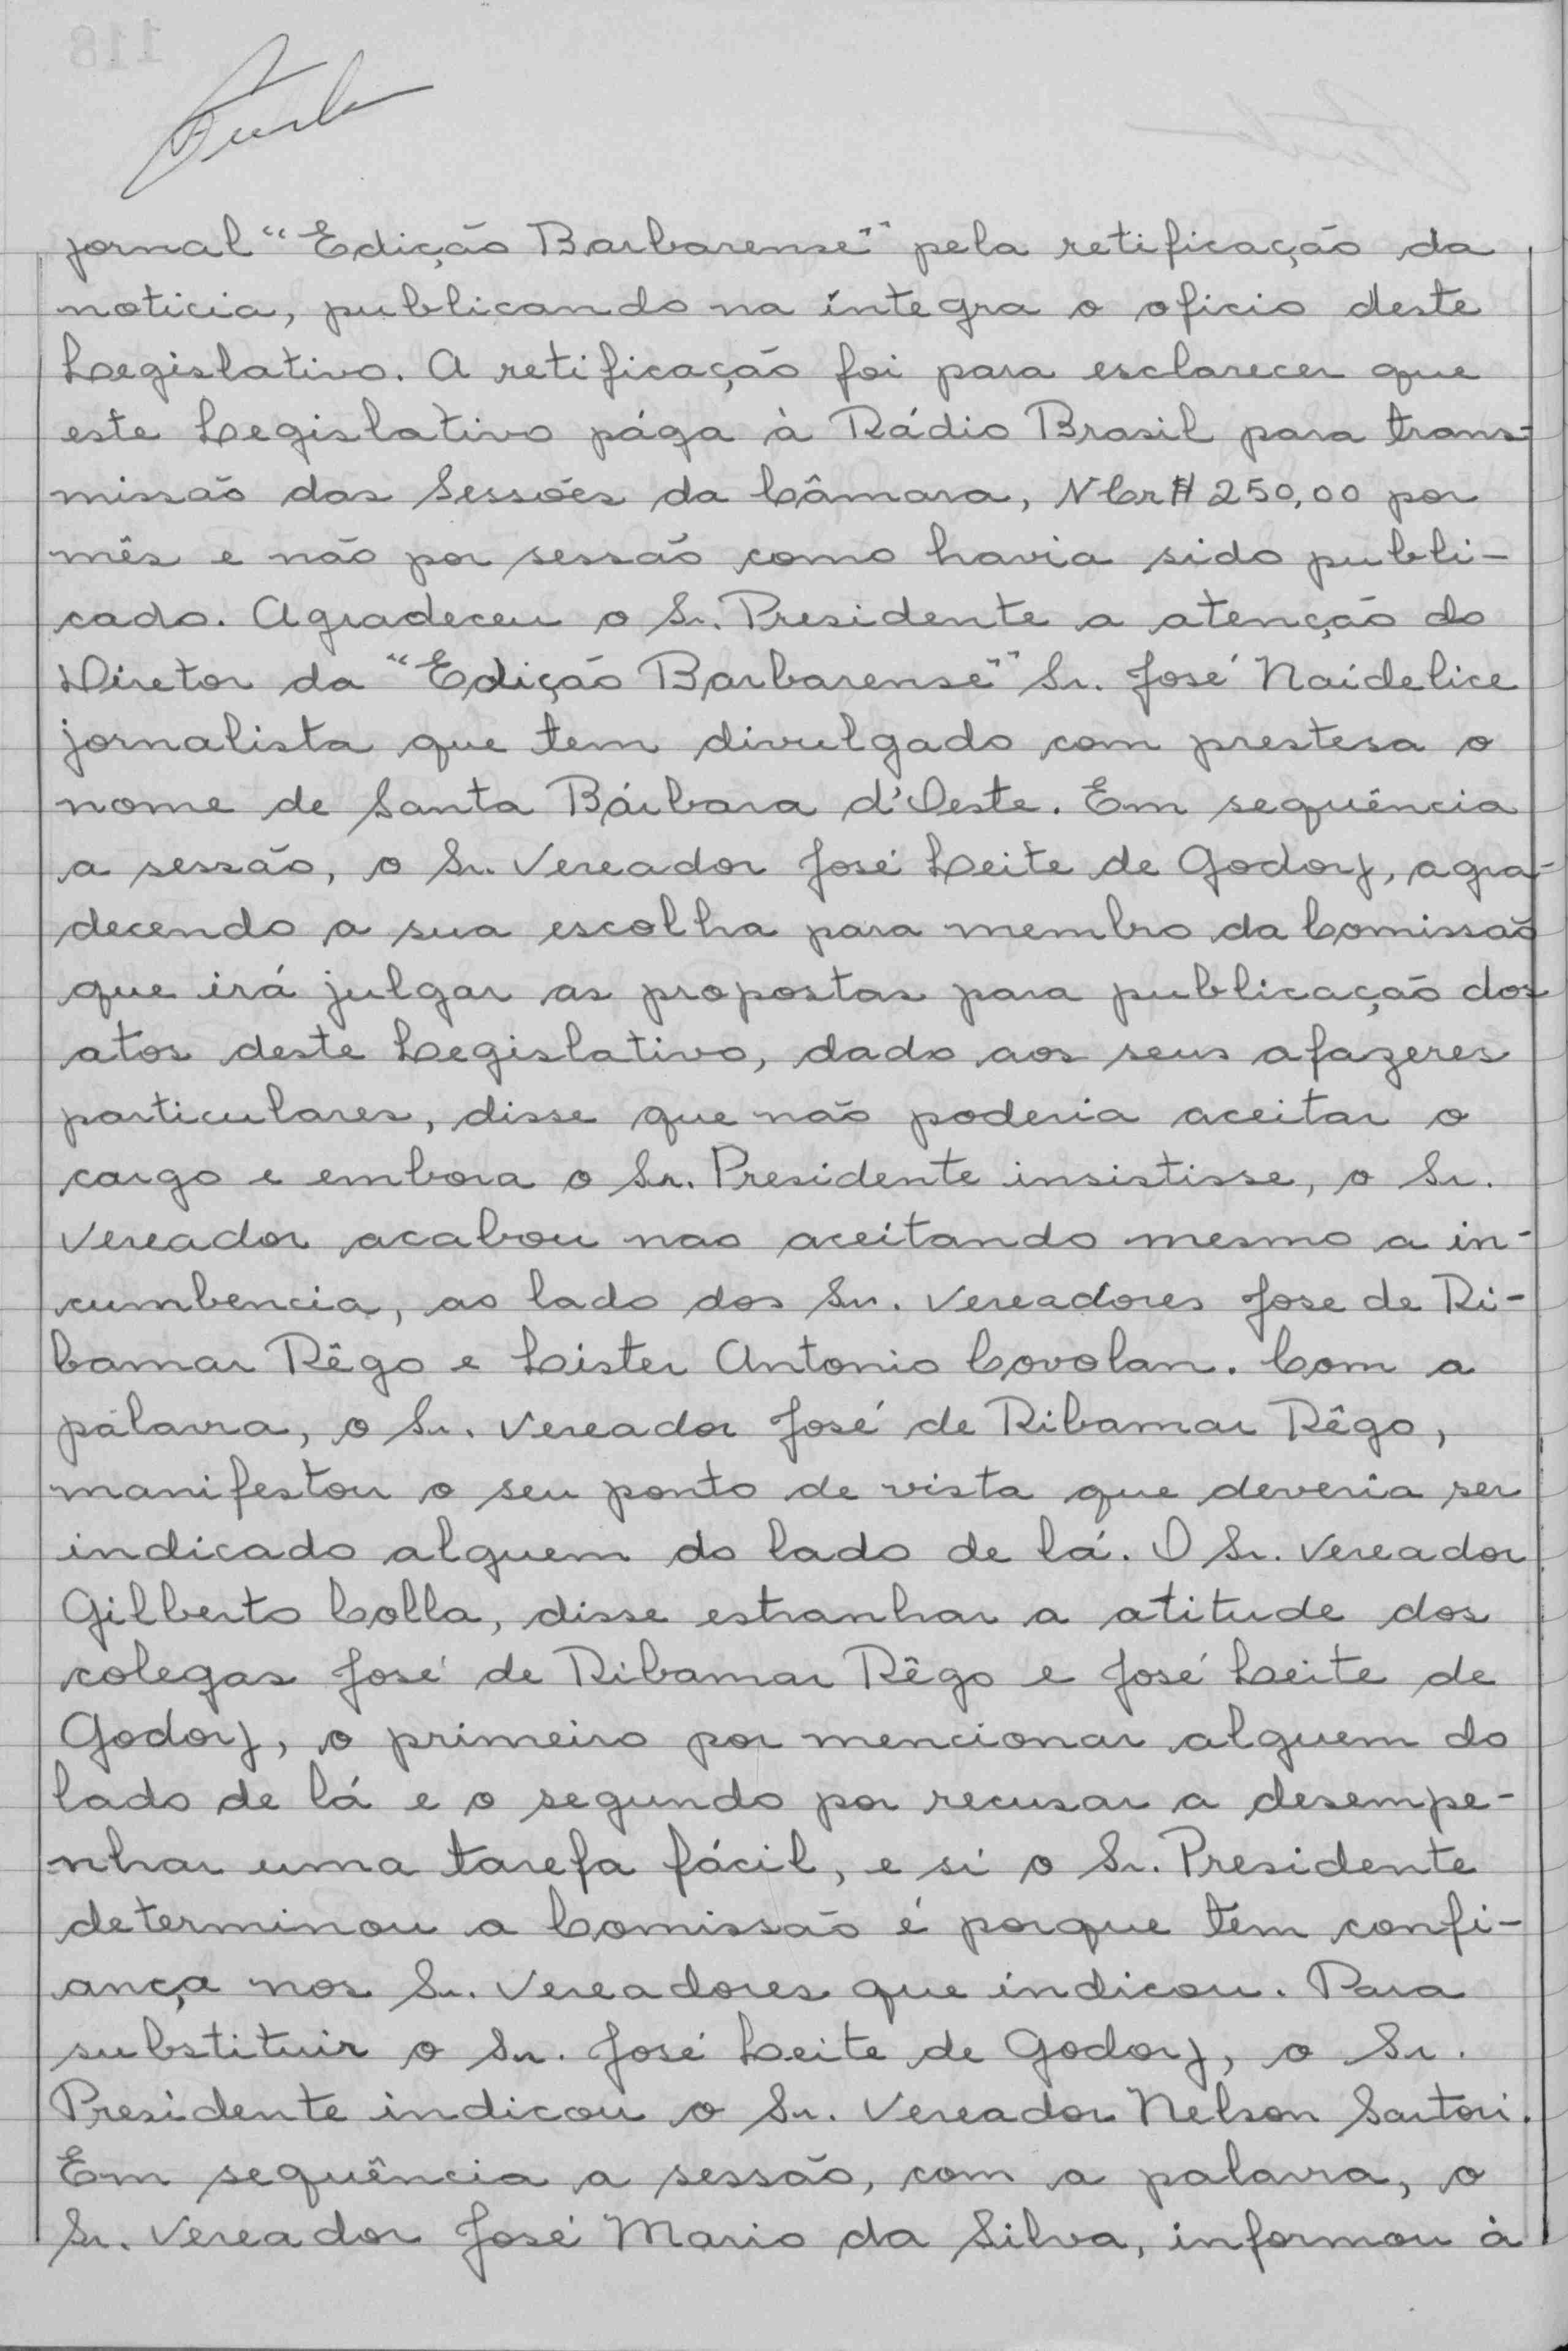 jornal "Edição Barbarense" pela retificação da
noticia, publicando na íntegra o oficio deste
Legislativo. A retificação foi para esclarecer que
este Legislativo pága à Rádio Brasil para trans-
missão das Sessões da Câmara, NCr$ 250,00 por
mês e não por sessão como havia sido publi-
cado. Agradeceu o Sr. Presidente a atenção do
Diretor da "Edição Barbarense" Sr. José Naidelice
jornalista que tem divulgado com prestesa o
nome de Santa Bárbara d'Oeste. Em sequência
a sessão, o Sr. Vereador José Leite de Godoy, agra-
decendo a sua escolha para membro da Comissão
que irá julgar as propostas para publicação dos
atos deste Legislativo, dado aos seus afazeres
particulares, disse que não poderia aceitar o
cargo e embora o Sr. Presidente insistisse, o Sr.
Vereador acabou nao aceitando mesmo a in-
cumbencia, ao lado dos Sr. Vereadores Jose de Ri-
bamar Rêgo e Lister Antonio Covolan. Com a
palavra, o Sr. Vereador José de Ribamar Rêgo,
manifestou o seu ponto de vista que deveria ser
indicado alguem do lado de lá. O Sr. Vereador
Gilberto Colla, disse estranhar a atitude dos
colegas José de Ribamar Rêgo e José Leite de
Godoy, o primeiro por mencionar alguem do
lado de lá e o segundo por recusar a desempe-
nhar uma tarefa fácil, e si o Sr. Presidente
determinou a Comissão é porque tem confi-
ança nos Sr. Vereadores que indicou. Para
substituir o Sr. José Leite de Godoy, o Sr.
Presidente indicou o Sr. Vereador Nelson Sartori.
Em sequência a sessão, com a palavra, o
Sr. Vereador José Mario da Silva, informou à